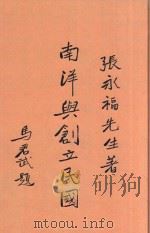 張永福先生著
南洋與創立民國
馬君武題
mtoou.info mtoou.info